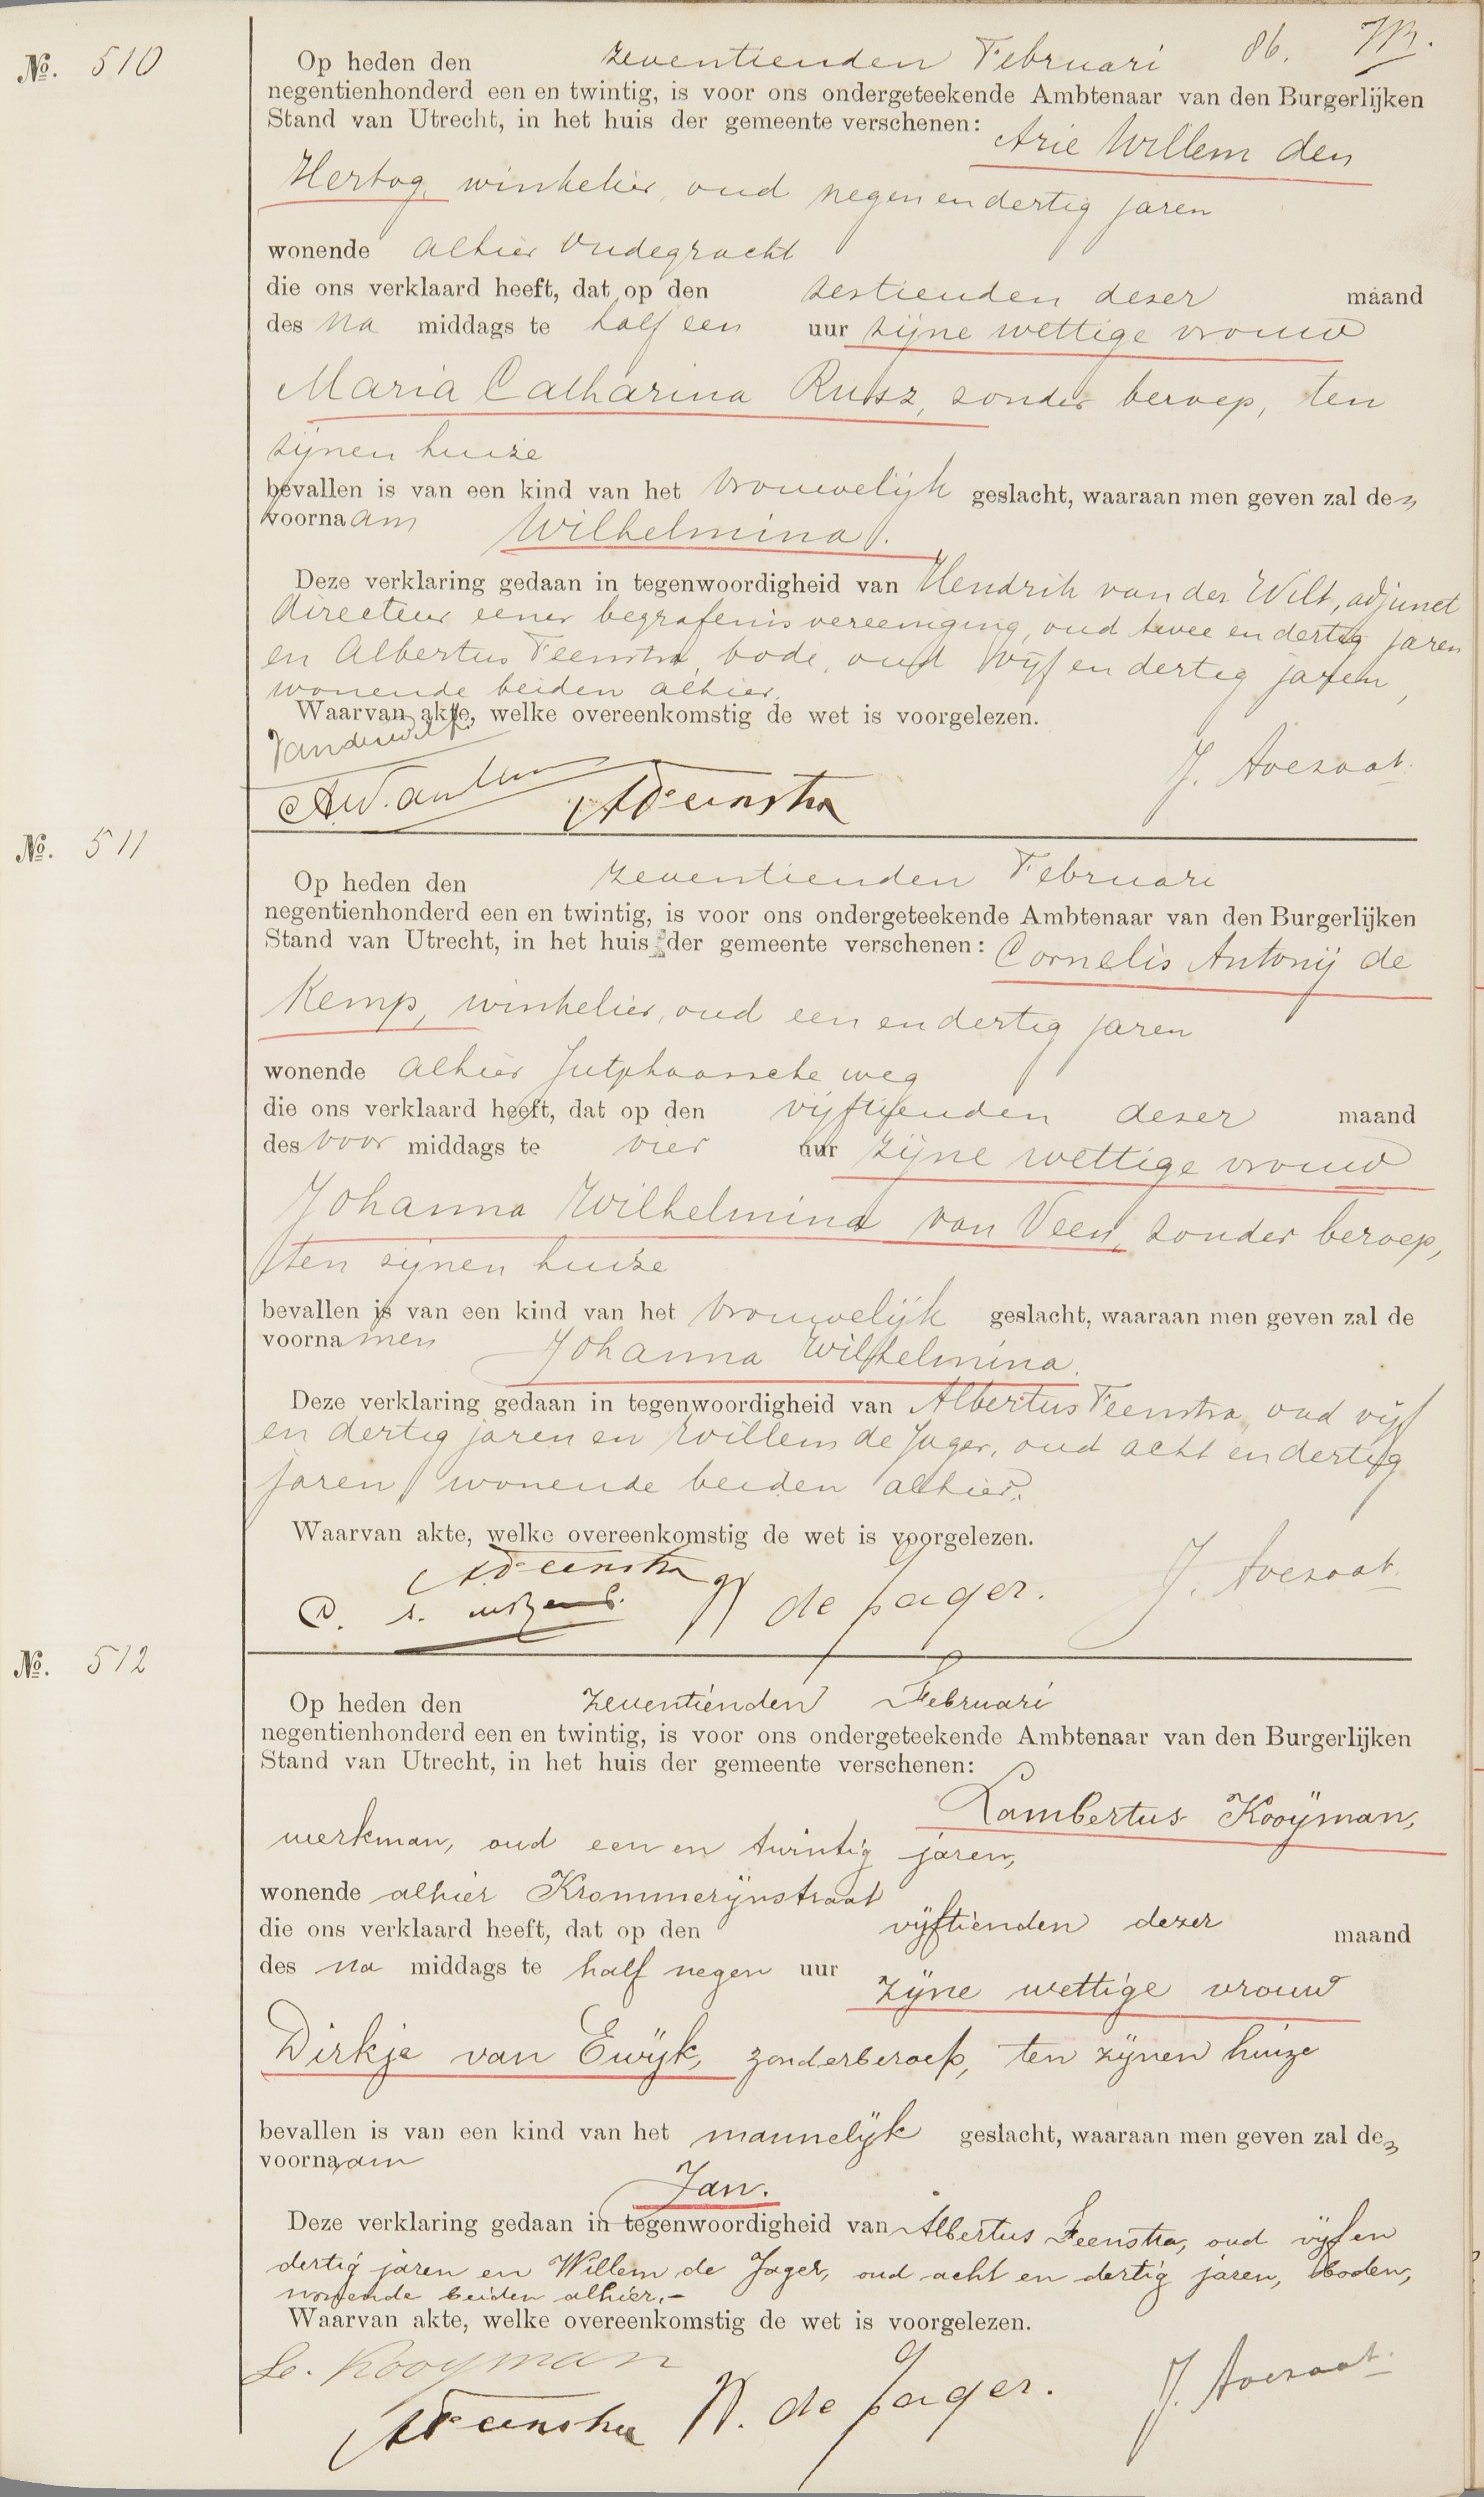 No. 510
86.
Op heden den zeventienden Februari
negentienhonderd een en twintig, is voor ons ondergeteekende Ambtenaar van den Burgerlijken
Stand van Utrecht, in het huis der gemeente verschenen: Arie Willem den
Hertog, winkelier, oud negen en dertig jaren
wonende alhier Oudegracht
die ons verklaard heeft, dat op den zestienden dezer maand
des na middags te half een uur zijne wettige vrouw
Maria Catharina Rusz, zonder beroep, ten
zijnen huize
bevallen is van een kind van het vrouwelijk geslacht, waaraan men geven zal den
voornaam Wilhelmina.
Deze verklaring gedaan in tegenwoordigheid van Hendrik van der Wilt, adjunct
directeur eener begrafenisvereeniging, oud twee en dertig jaren
en Albertus Feenstra, bode, oud vijf en dertig jaren,
wonende beiden alhier.
Waarvan akte, welke overeenkomstig de wet is voorgelezen.
Vanderwilt
J. Avezaat
A Feenstra
No. 511
Op heden den zeventienden Februari
negentienhonderd een en twintig, is voor ons ondergeteekende Ambtenaar van den Burgerlijken
Stand van Utrecht, in het huis der gemeente verschenen: Cornelis Antonij de
Kemp, winkelier, oud een en dertig jaren
wonende alhier Jutphaassche weg
die ons verklaard heeft, dat op den vijftienden dezer maand
des voor middags te vier uur zijne wettige vrouw
Johanna Wilhelmina van Veen, zonder beroep,
ten zijnen huize
bevallen is van een kind van het vrouwelijk geslacht, waaraan men geven zal de
voornamen Johanna Wilhelmina.
Deze verklaring gedaan in tegenwoordigheid van Albertus Feenstra, oud vijf
en dertig jaren en Willem de Jager, oud acht en dertig
jaren wonende beiden alhier.
Waarvan akte, welke overeenkomstig de wet is voorgelezen.
A Feenstra
W de Jager. J. Avezaat
No. 512
Op heden den zeventienden Februari
negentienhonderd een en twintig, is voor ons ondergeteekende Ambtenaar van den Burgerlijken
Stand van Utrecht, in het huis der gemeente verschenen:
Lambertus Kooijman,
werkman, oud een en twintig jaren,
wonende alhier Krommerijnstraat
die ons verklaard heeft, dat op den vijftienden dezer maand
des na middags te half negen uur zijne wettige vrouw
Dirkje van Ewijk, zonder beroep, ten zijnen huize
bevallen is van een kind van het mannelijk geslacht, waaraan men geven zal den
voornaam
Jan.
Deze verklaring gedaan in tegenwoordigheid van Albertus Feenstra, oud vijf en
dertig jaren en Willem de Jager, oud acht en dertig jaren, boden,
wonende beiden alhier.-
Waarvan akte, welke overeenkomstig de wet is voorgelezen.
Le. Kooyman
A Feenstra W. de Jager. J. Avezaat